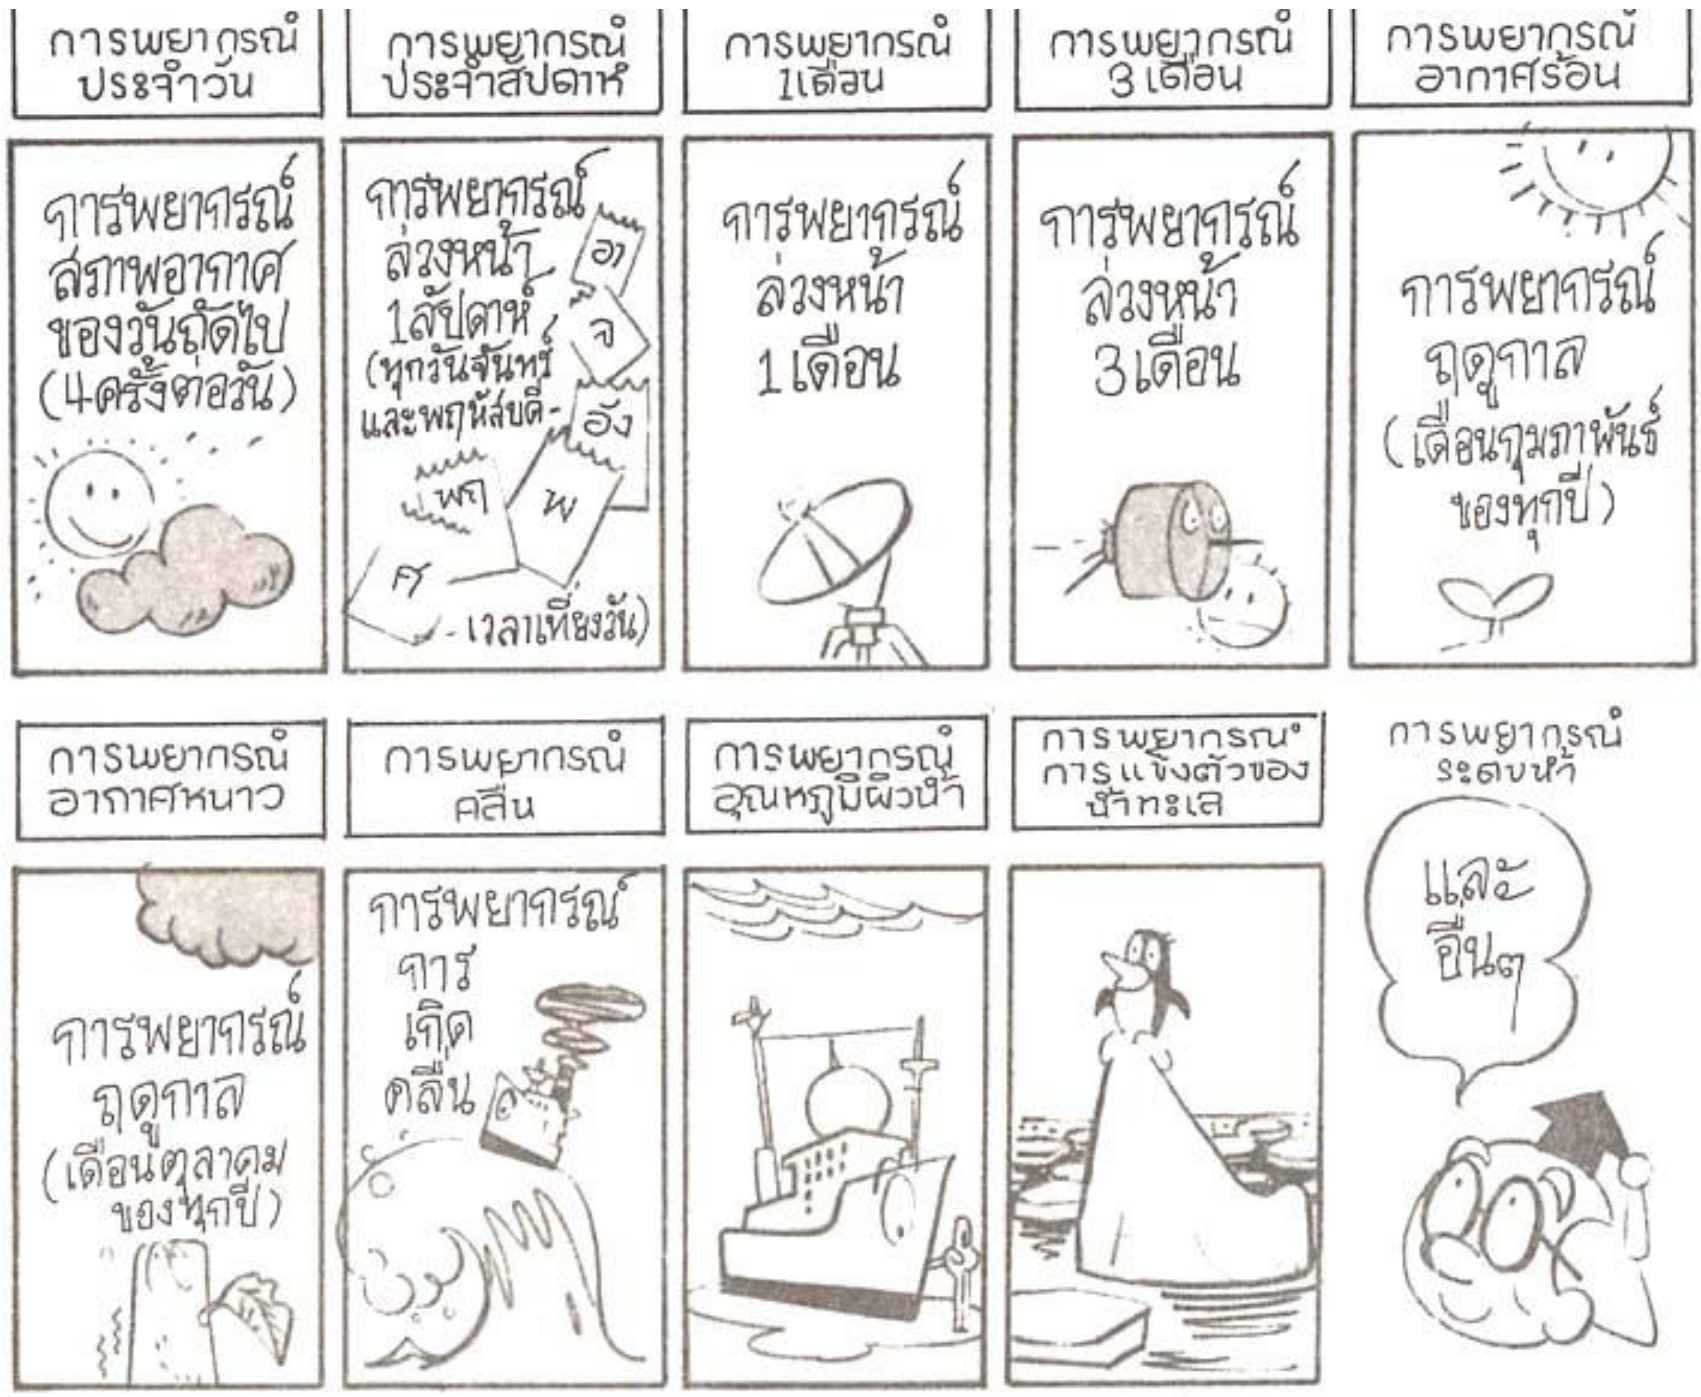 การพยากรณ์
ประจำวัน
การพยากรณ์
สภาพอากาศ
ของวันถัดไป
(4ครั้งต่อวัน)
การพยากรณ์
ประจำสัปดาห์
การพยากรณ์
ล่วงหน้า
1สัปดาห์
(ทุกวันจันทร์
และพฤหัสบดี-
อา
จ
อัง
พ
พฤ
ศ
-เวลาเที่ยงวัน)
การพยากรณ์
1เดือน
การพยากรณ์
ล่วงหน้า
1เดือน
การพยากรณ์
3เดือน
การพยากรณ์
ล่วงหน้า
3เดือน
การพยากรณ์
อากาศร้อน
การพยากรณ์
ฤดูกาล
(เดือนกุมภาพันธ์
ของทุกปี)
การพยากรณ์
อากาศหนาว
การพยากรณ์
ฤดูกาล
(เดือนตุลาคม
ของทุกปี)
การพยากรณ์
คลื่น
การพยากรณ์
การ
เกิด
คลื่น
การพยากรณ์
อุณหภูมิผิวน้ำ
การพยากรณ์
การแข็งตัวของ
น้ำทะเล
การพยากรณ์
ระดับน้ำ
และ
อื่นๆ